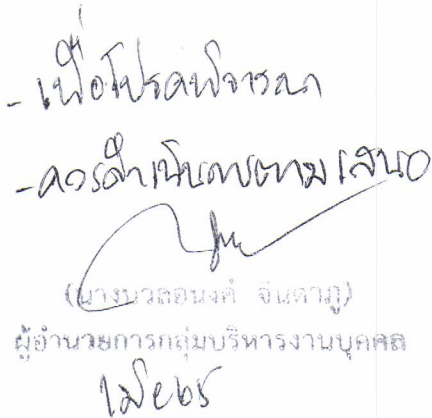 - เพื่อโปรดพิจารณา
- ควรดำเนินการตามเสนอ
(นางนวลอนงค์ จินดาภู)
ผู้อำนวยการกลุ่มบริหารงานบุคคล